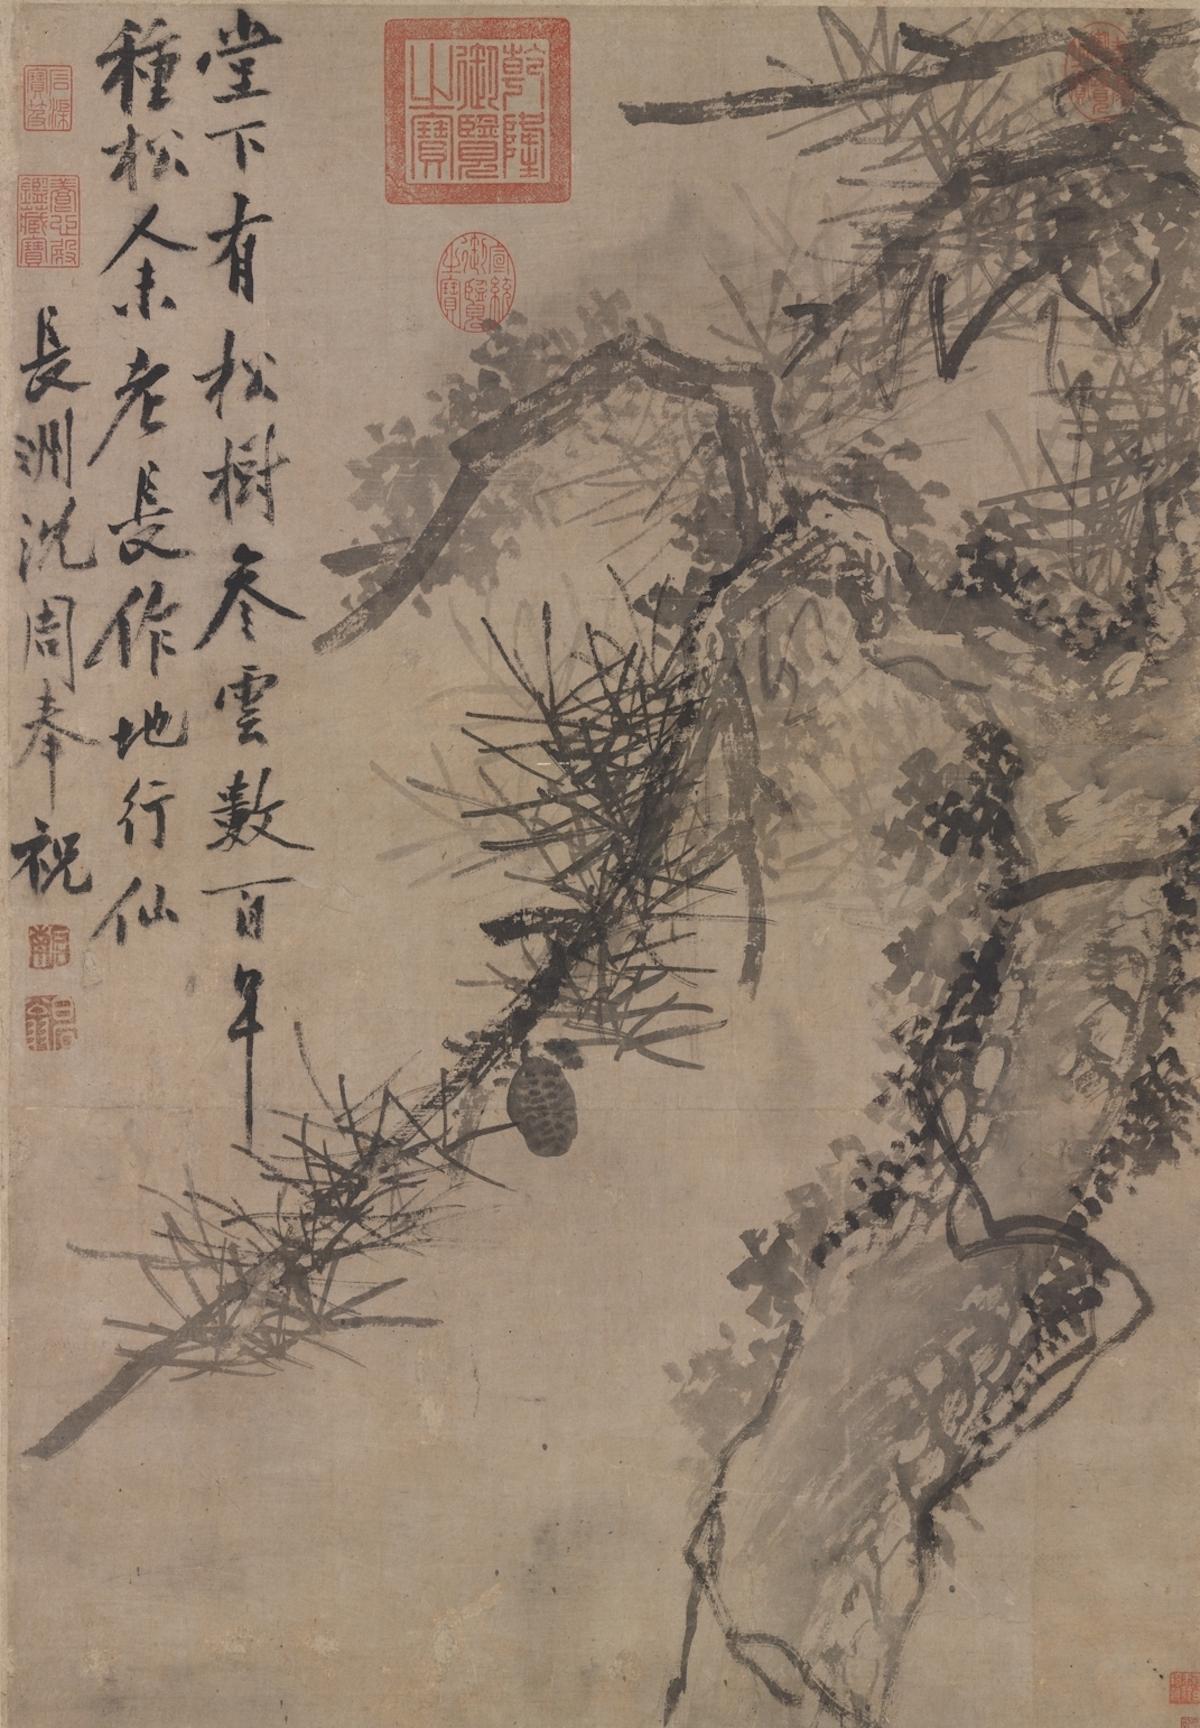 堂下有松樹參雲數百年
種松人未老長作地行仙
長洲沈周奉祝
乾隆御覽之寶
宣統御覽之寶
養心殿鑑藏寶
石渠寶笈
啟南